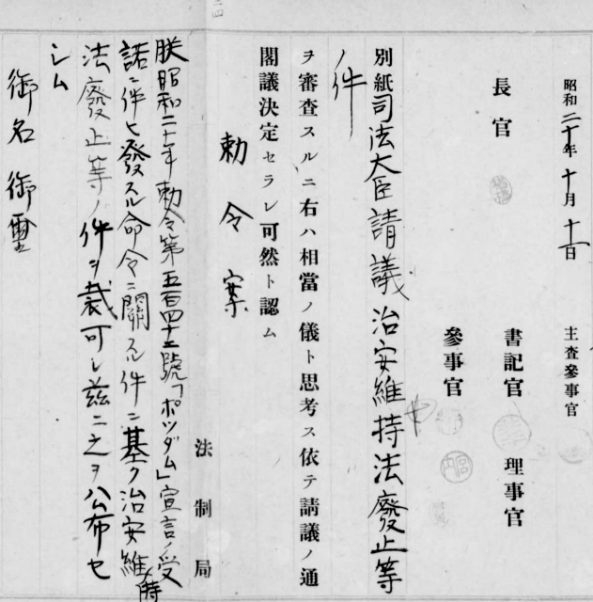 昭和二十年十月十一日
主査參事官
長官
書記官 理事官
參事官
別紙司法大臣請議治安維持法廢止等
ノ件
ヲ審査スルニ右ハ相當ノ儀ト思考ス依テ請議ノ通
閣議決定セラレ可然ト認ム
勅令案
法制局
朕昭和二十年勅令第五百四十二號「ポツダム」宣言ノ受
諾ニ伴ヒ發スル命令ニ關スル件ニ基ク治安維持
法廢止等ノ件ヲ裁可シ茲ニ之ヲ公布セ
シム
御名御璽